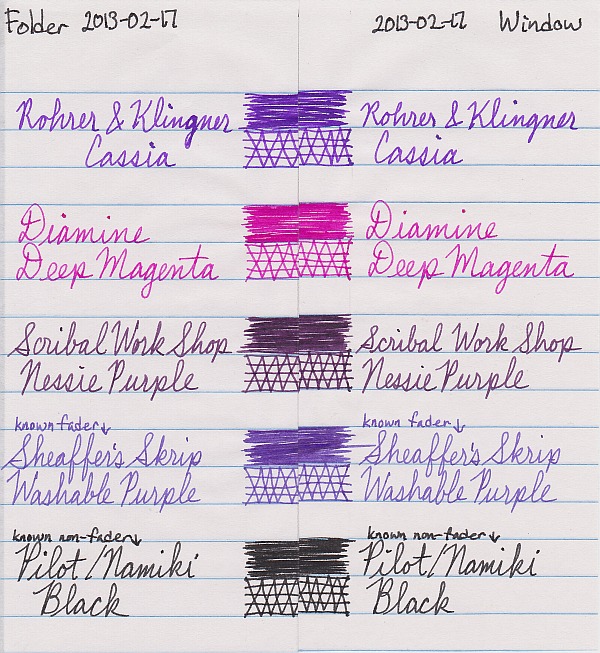 Folder 2013-02-17
2013-02-17 Window
Rohrer & Klingner
Cassia
Rohrer & Klingner
Cassia
Diamine
Deep Magenta
Diamine
Deep Magenta
Scribal Work Shop
Nessie Purple
Scribal Work Shop
Nessie Purple
known fader↓
Sheaffer's Skrip
Washable Purple
known fader↓
Sheaffer's Skrip
Washable Purple
known non-fader↓
Pilot/Namiki
Black
known non-fader↓
Pilot/Namiki
Black